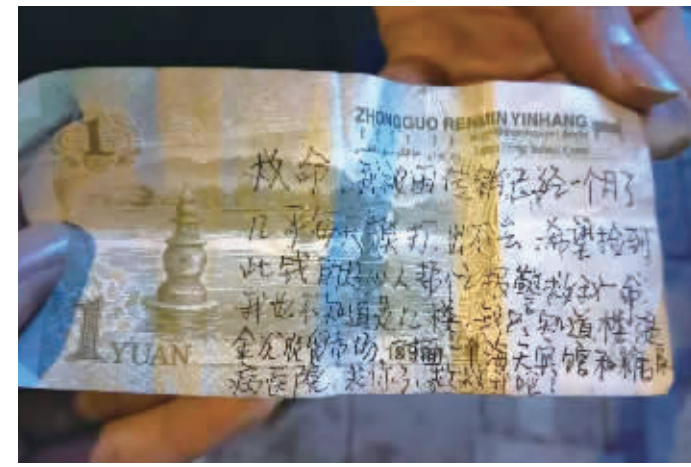 1
ZHONGGUO RENMIN YINHANG 1
救命 我被困传销已经一个月了
几乎每天被打 出不去 希望捡到
此钱的好心人帮忙报警救我一命
我也不知道是几楼 只知道楼是
金 市场 海天宾馆和糖尿
病医院 求你们救救我吧!
1 YUAN